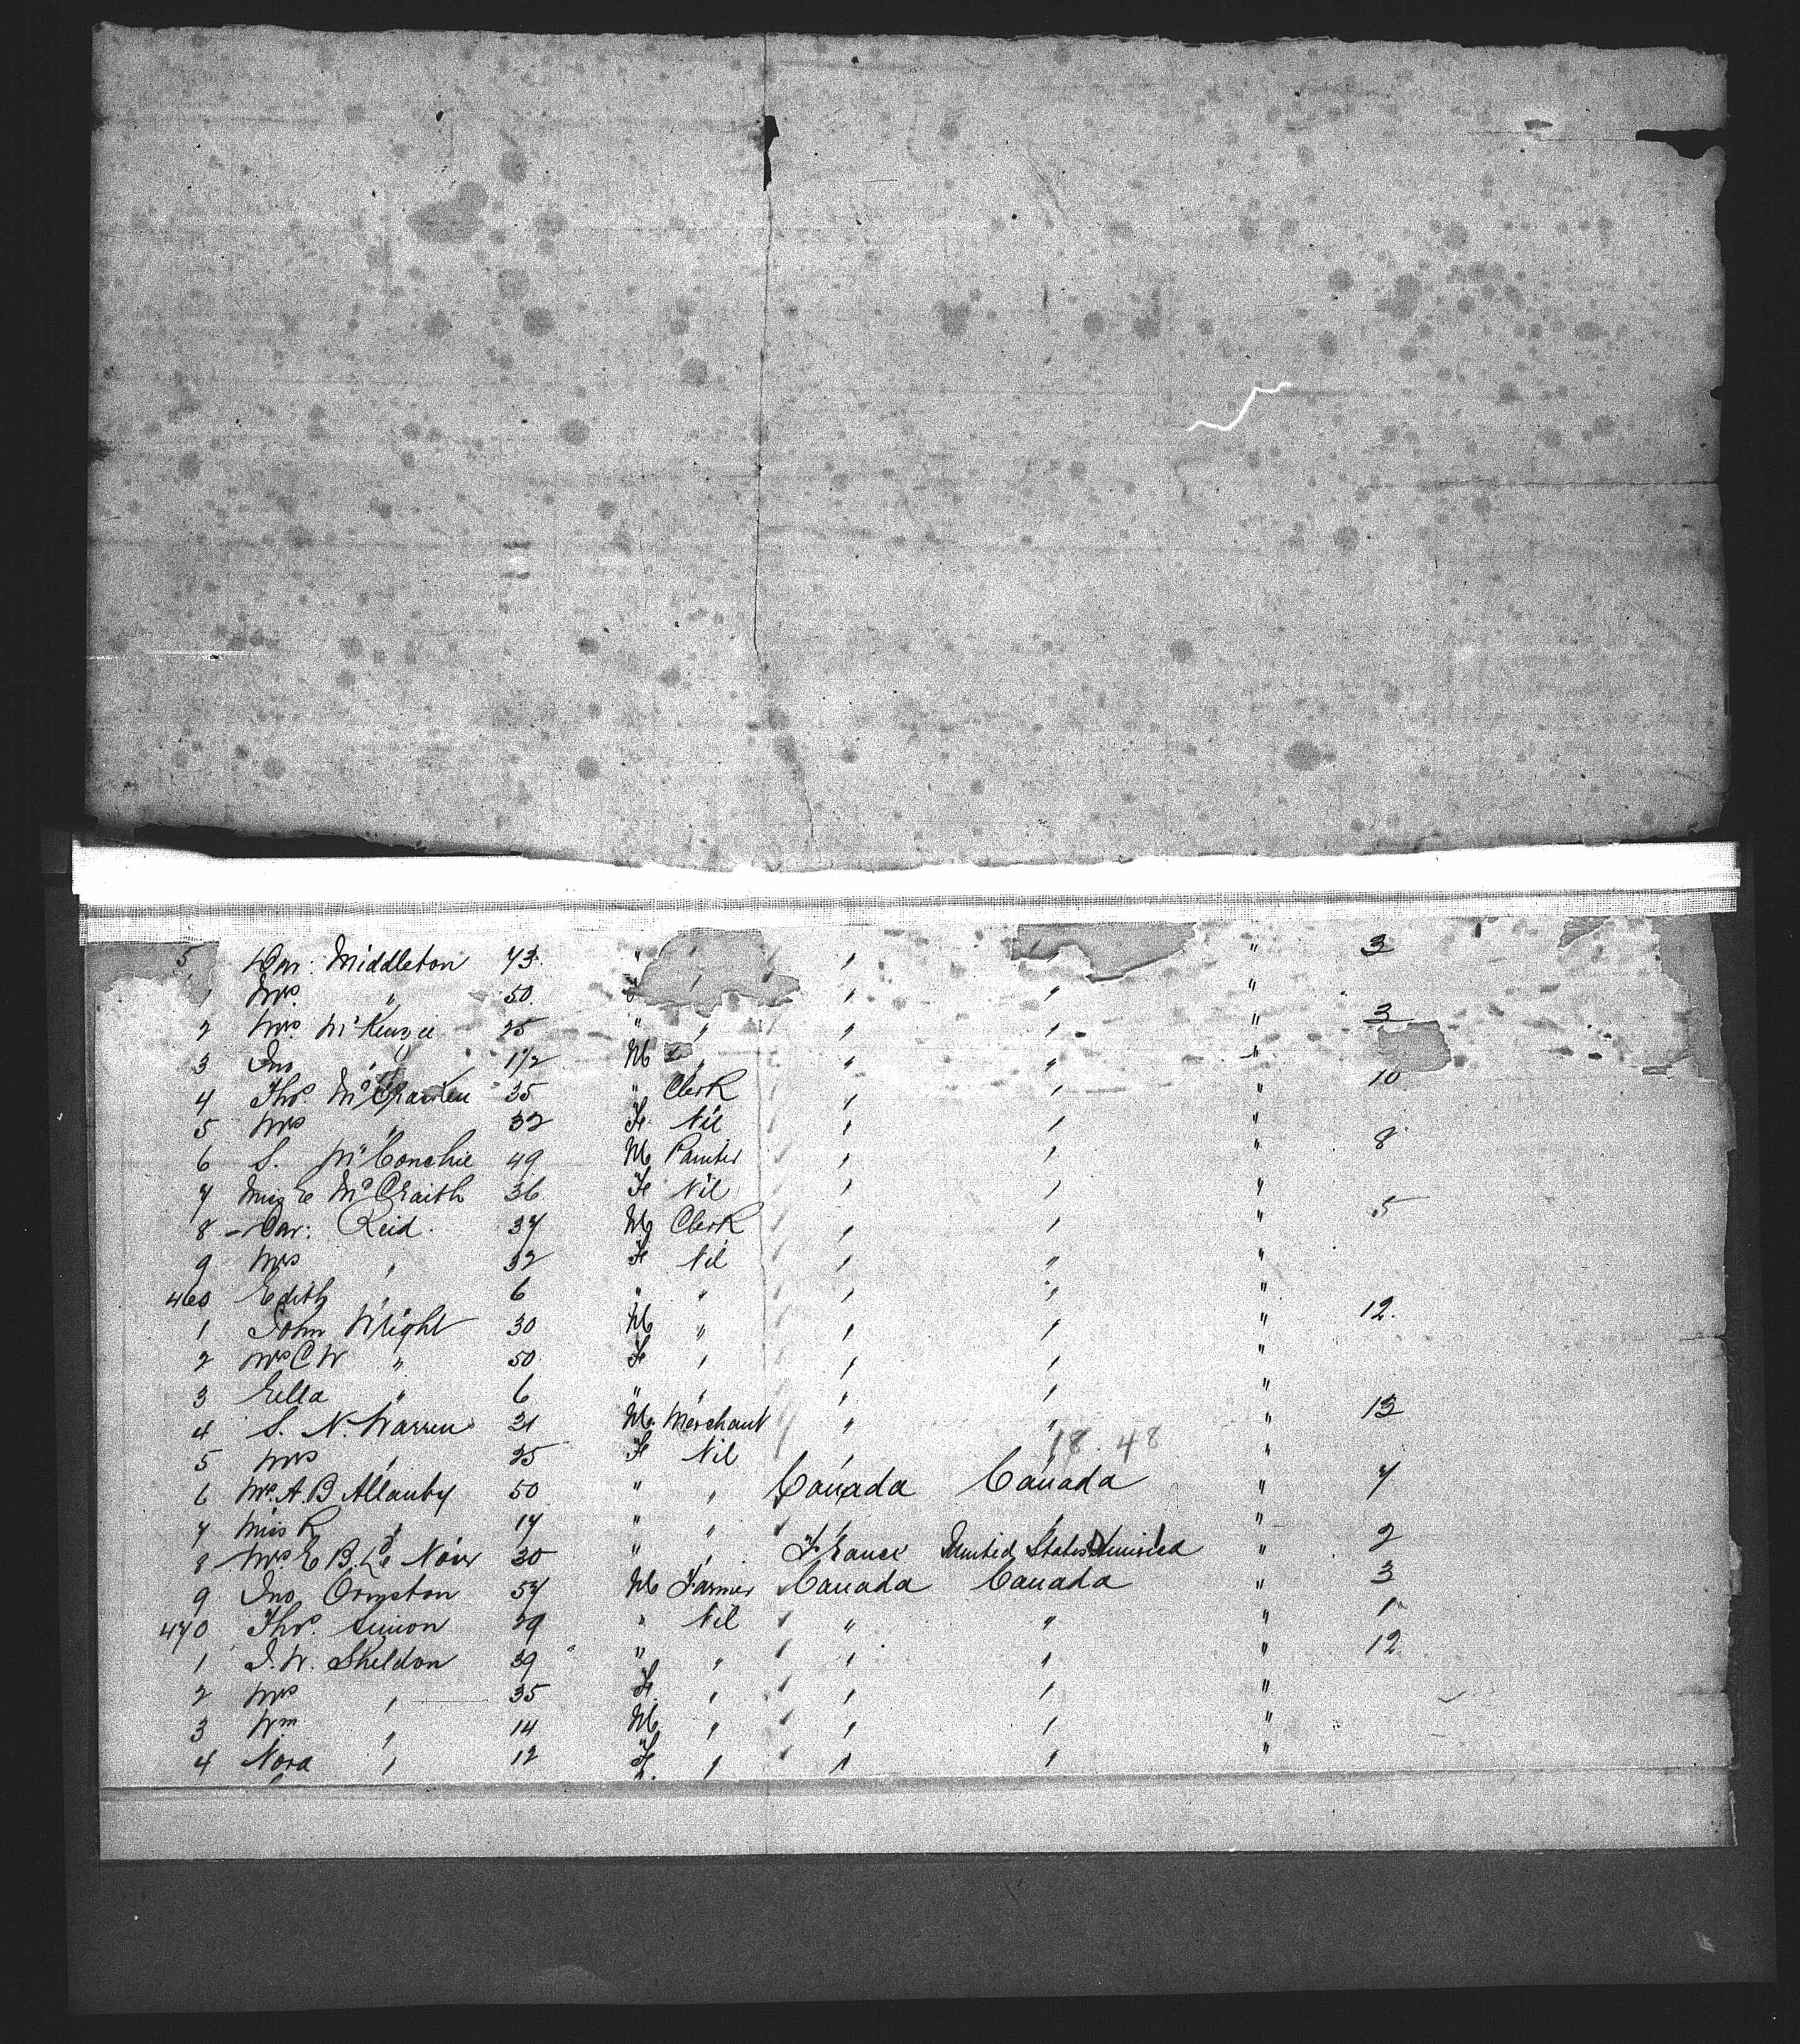 5 Middleton 43 " " " " 3
1 Mrs " 50 " " " "
2 Mrs McKenzie 25 " " " " " 3
3 Jno " 1 1/2 M " " " "
4 Thos 35 " Clerk " " " 10
5 Mrs " 32 Fe Nil " " "
6 S. McConchie 49 M Painter " " " 8
7 Miss E 36 Fe Nil " " "
8 Reid 37 M Clerk " " " 5
9 Mrs " 32 Fe Nil " " "
460 Edith " 6 " " " " "
1 John Wright 30 M " " " " 12.
2 Mrs C W " 50 Fe " " " "
3 Ella " 6 " " " " "
4 S. N. Warren 31 M Merchant " " " 13
5 Mrs " 25 Fe Nil " " "
18. 48
6 Mrs A. B Allanby 50 " " Canada Canada " 7
7 Miss R " 17 " " " " "
8 Mrs E B. 30 " " France United States America " 2
9 Jno Ormston 57 M Farmer Canada Canada " 3
470 Thos. Simon 29 " Nil " " " 1
1 J. W. Sheldon 39 " " " " " 12
2 Mrs " 35 Fe " " " "
3 Wm " 14 M " " " "
4 Nora " 12 Fe " " " "